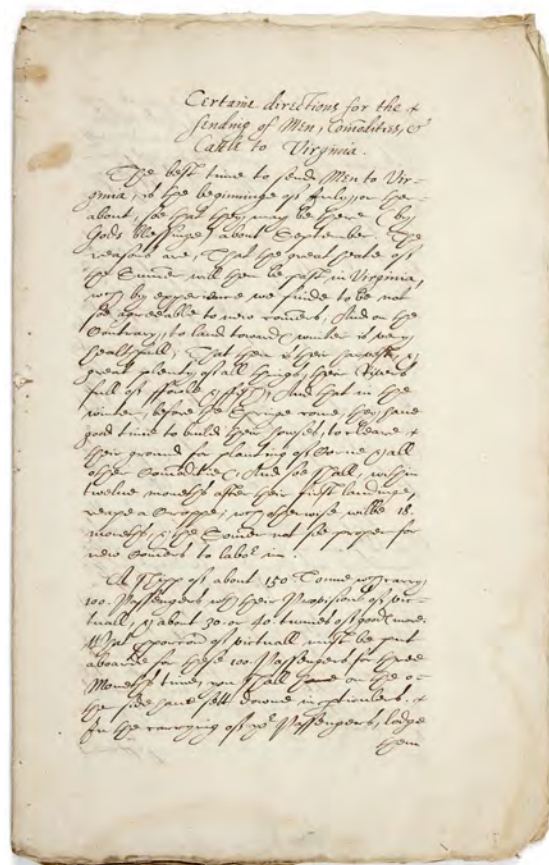 Certaine directions for the
sending of Men, Comodities, &
Cattle to Virginia.
The best time to send Men to Vir-
ginia, is the beginninge of July, or ther-
about, soe that they may be there (by
Gods blessinge) about September. The
reasons are, That the great heate of
the Sumer will then be past in Virginia,
wch by experience we finde to be not
soe agreeable to new comers, And on the
Contrary, to land toward winter is very
healthfull; That then is their harvest, &
great plenty of all things, their Rivers
full of ffowle & ffish; And that in the
winter, before the Springe come, they have
good time to build their houses, to cleare
their ground for planting of Corne & all
other Comodities, And soe shall, within
twelve months after their first landinge,
reape a Croppe; wch otherwise wilbe 18.
months, & the Somer not soe proper for
new Comers to labor in.
A Shipp of about 150 Tonne will carry
100. Passengers wth their Provisions of vic-
tuall, & about 30. or 40. tunnes of goods more.
What proporcon of victuall must be put
aboarde for these 100. Passengers for three
Months time, you shall on the o-
ther side have sett downe in pticulers.
In the carrying of yor Passengers, lodge
them